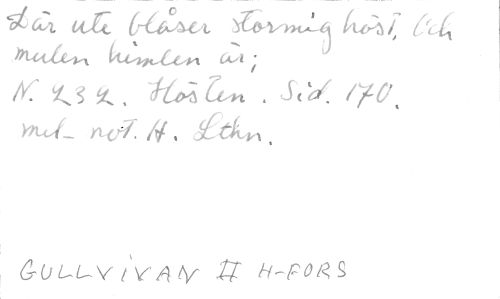 Där ute blåser stormig höst, Och
mulen himlen är;
N. 232. Hösten. Sid. 170.
mel- not. H. Lthn.
GULLVIVAN II H-FORS